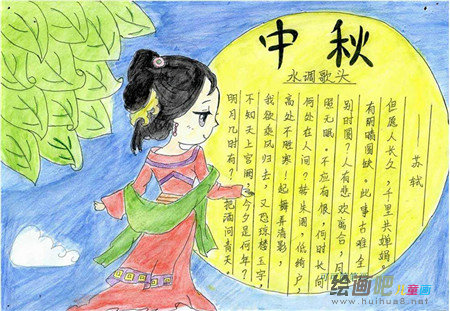 中秋
水调歌头
明月几时有？把酒问青天
不知天上宫阙，今夕是何年？
我欲乘风归去，又恐琼楼玉宇，
高处不胜寒！起舞弄清影，
何处在人间？转朱阁，低绮户，
照无眠。不应有恨，何时长向
别时圆？人有悲欢离合，月
有阴晴圆缺。此事古难全
但愿人长久，千里共婵娟。
苏轼
绘画吧儿童画
www.huihua8.net